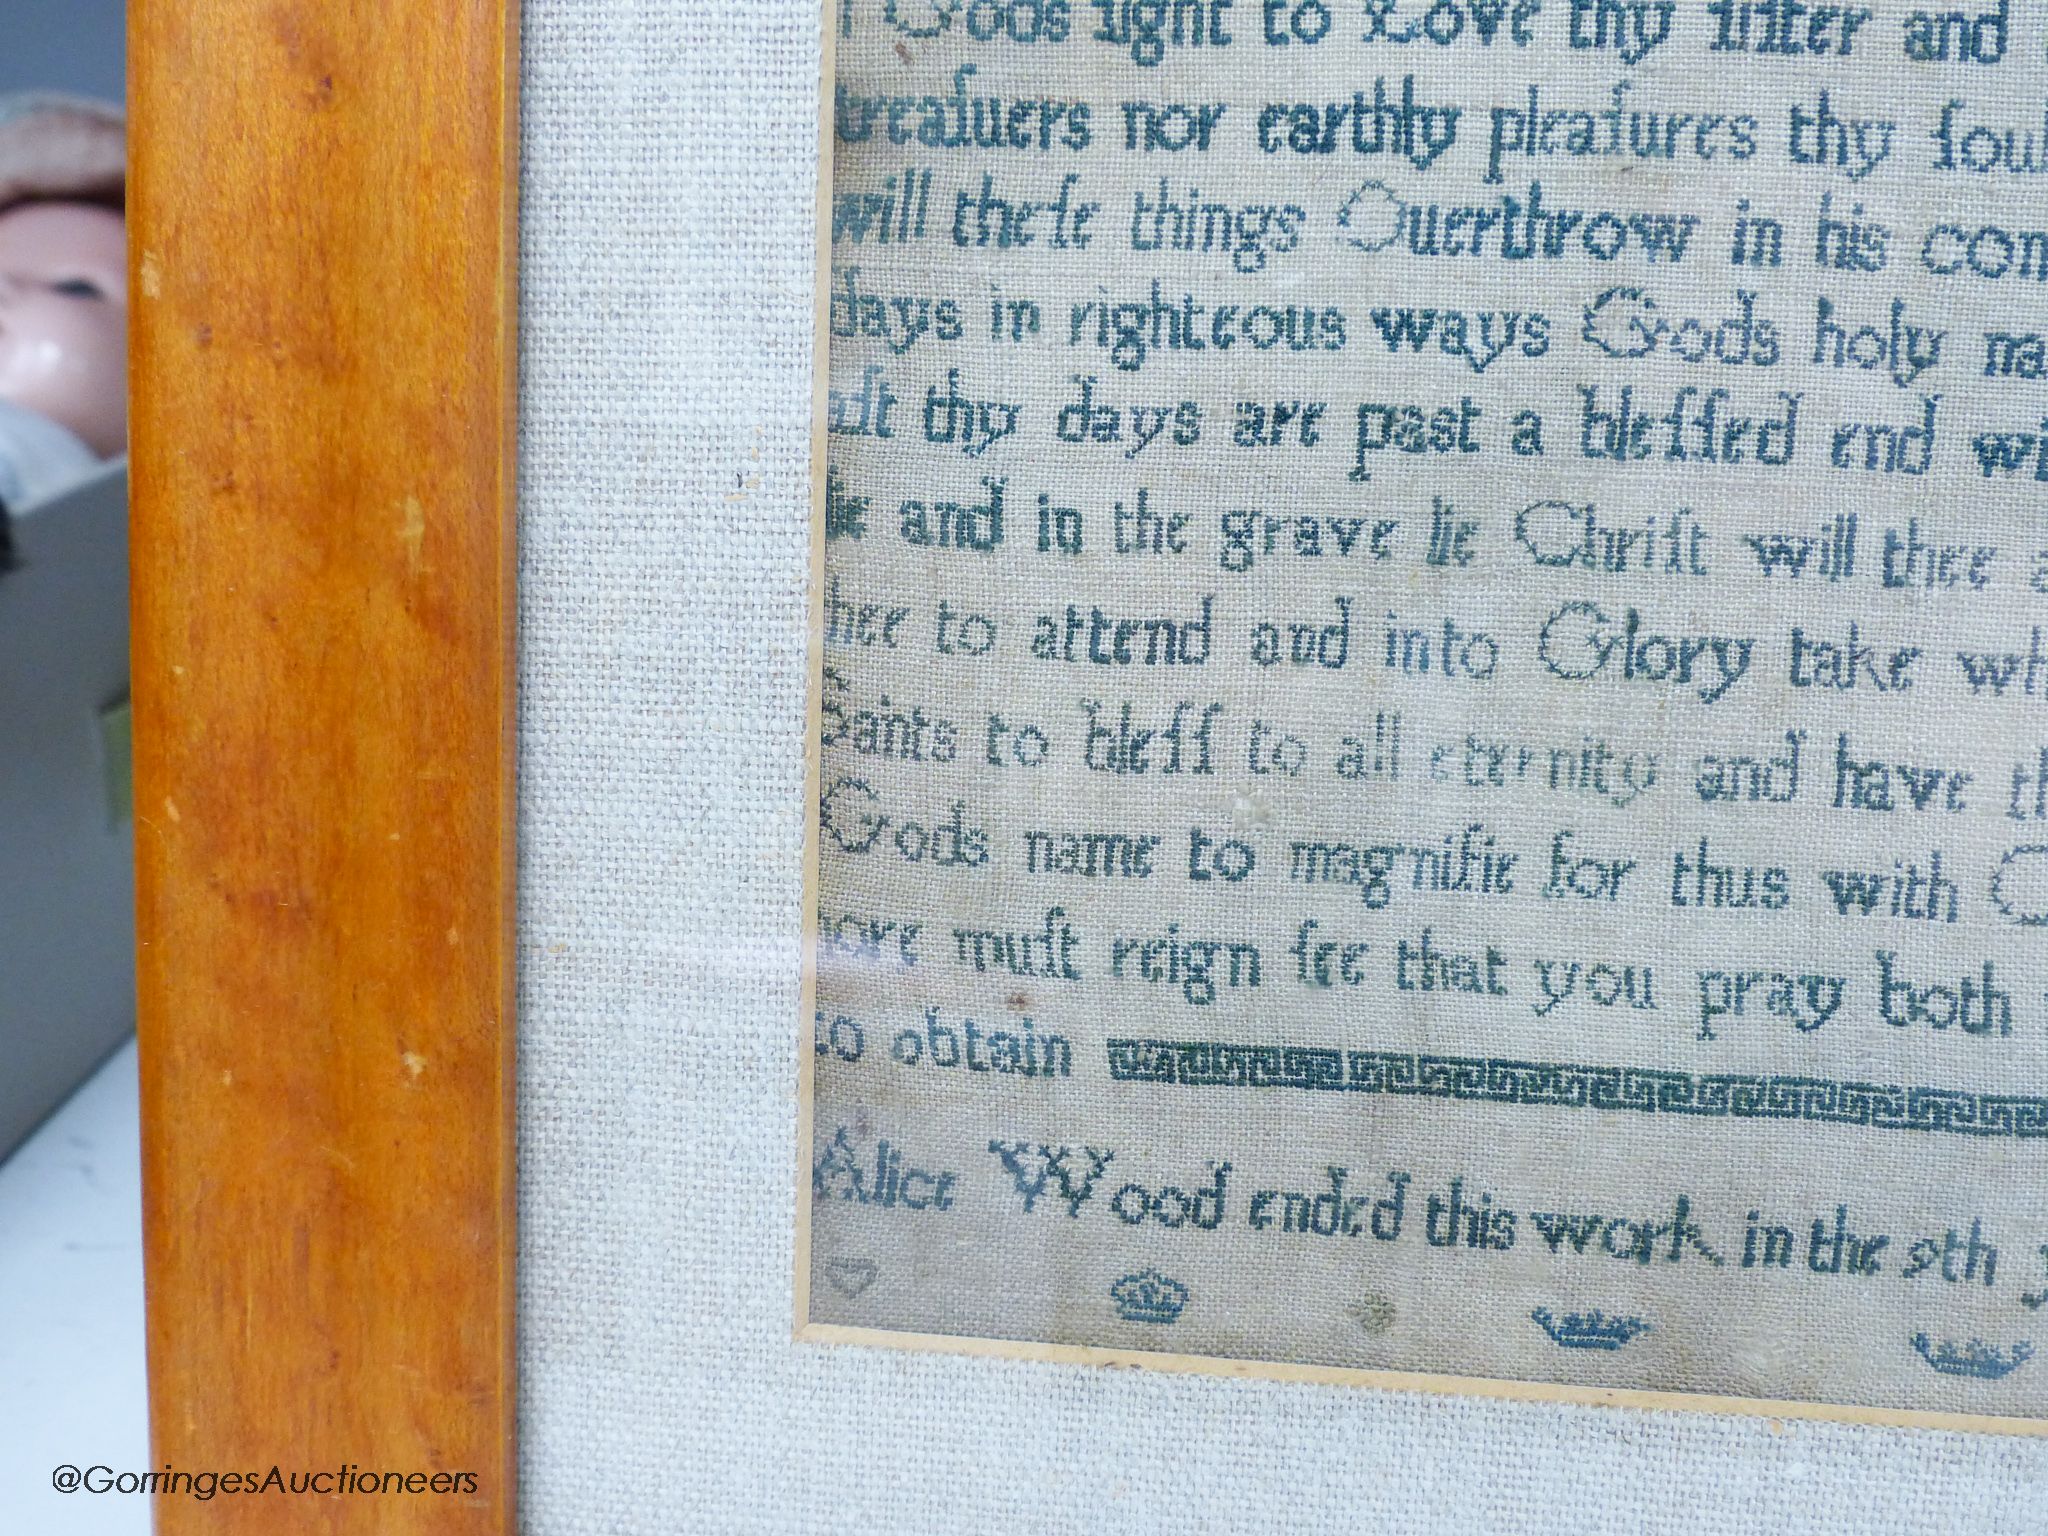 Gods ſight to Love thy ſiſter and
treaſuers nor earthly pleaſures thy ſoul
will theſe things Ouerthrow in his com
days in righteous ways Gods holy na
thy days are past a bleſſed end wi
and in the grave lie Chriſt will thee a
hee to attend and into Glory take wh
Saints to bleſſ to all eternity and have th
Gods name to magnifie for thus with
muſt reign ſee that you pray both
to obtain
Alice Wood ended this work in the 9th y
@GorringesAuctioneers